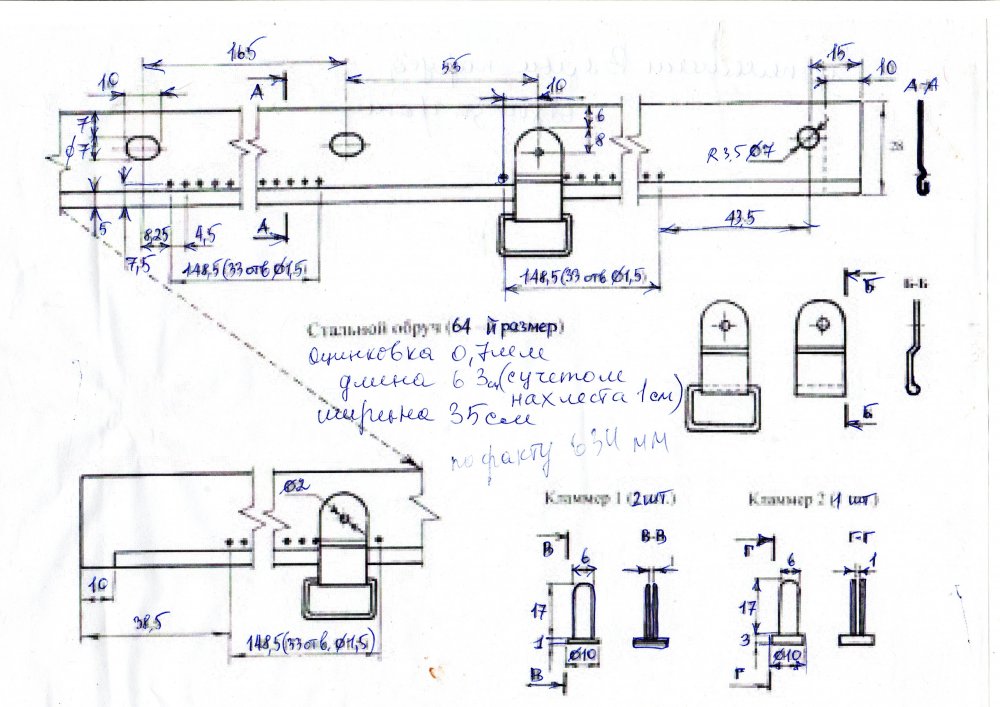 165
15
55
10
10
10
А
А-А
7
6
8
ϕ7
R3,5 Ø7
28
5
8,25
4,5
А
43,5
7,5
148,5(33 отв Ø1,5)
148,5(33 отв Ø1,5)
Б
Б-Б
Стальной обруч (64 й размер)
оцинковка 0,7мм
длина 63см(с учетом
нахлеста 1см)
ширина 35см
Б
по факту 634 мм
Ø2
Кламмер 1 (2шт.)
Кламмер 2 (1 шт.)
В
В-В
Г
Г-Г
6
1
6
1
10
17
17
38,5
1
3
148,5(33 отв, Ø1,5)
Ø10
Ø10
В
Г